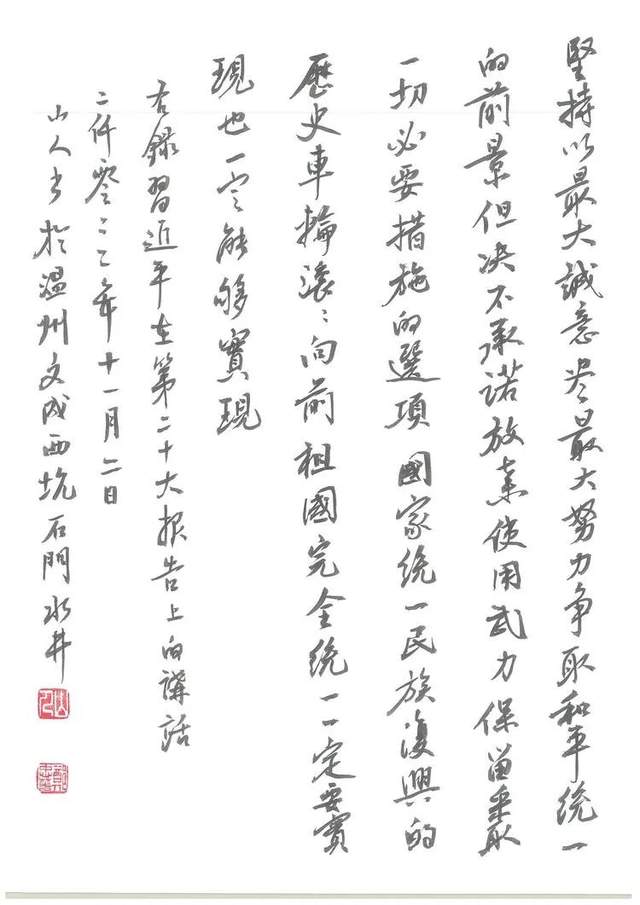 堅持以最大誠意盡最大努力争取和平統一
的前景但决不承諾放棄使用武力保留采取
一切必要措施的選項國家統一民族復興的
歷史車輪滾〻向前祖國完全統一一定要實
現也一定能够實現
右錄習近平在第二十大报告上的講話
二仟零二二年十一月二日
山人書於温州文成西坑石門水井